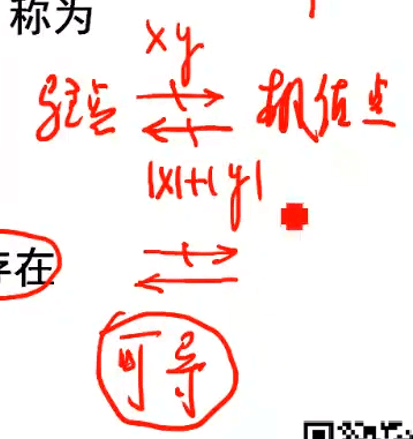 称为
xy
驻点 极值点
|x|+|y|
存在
可导